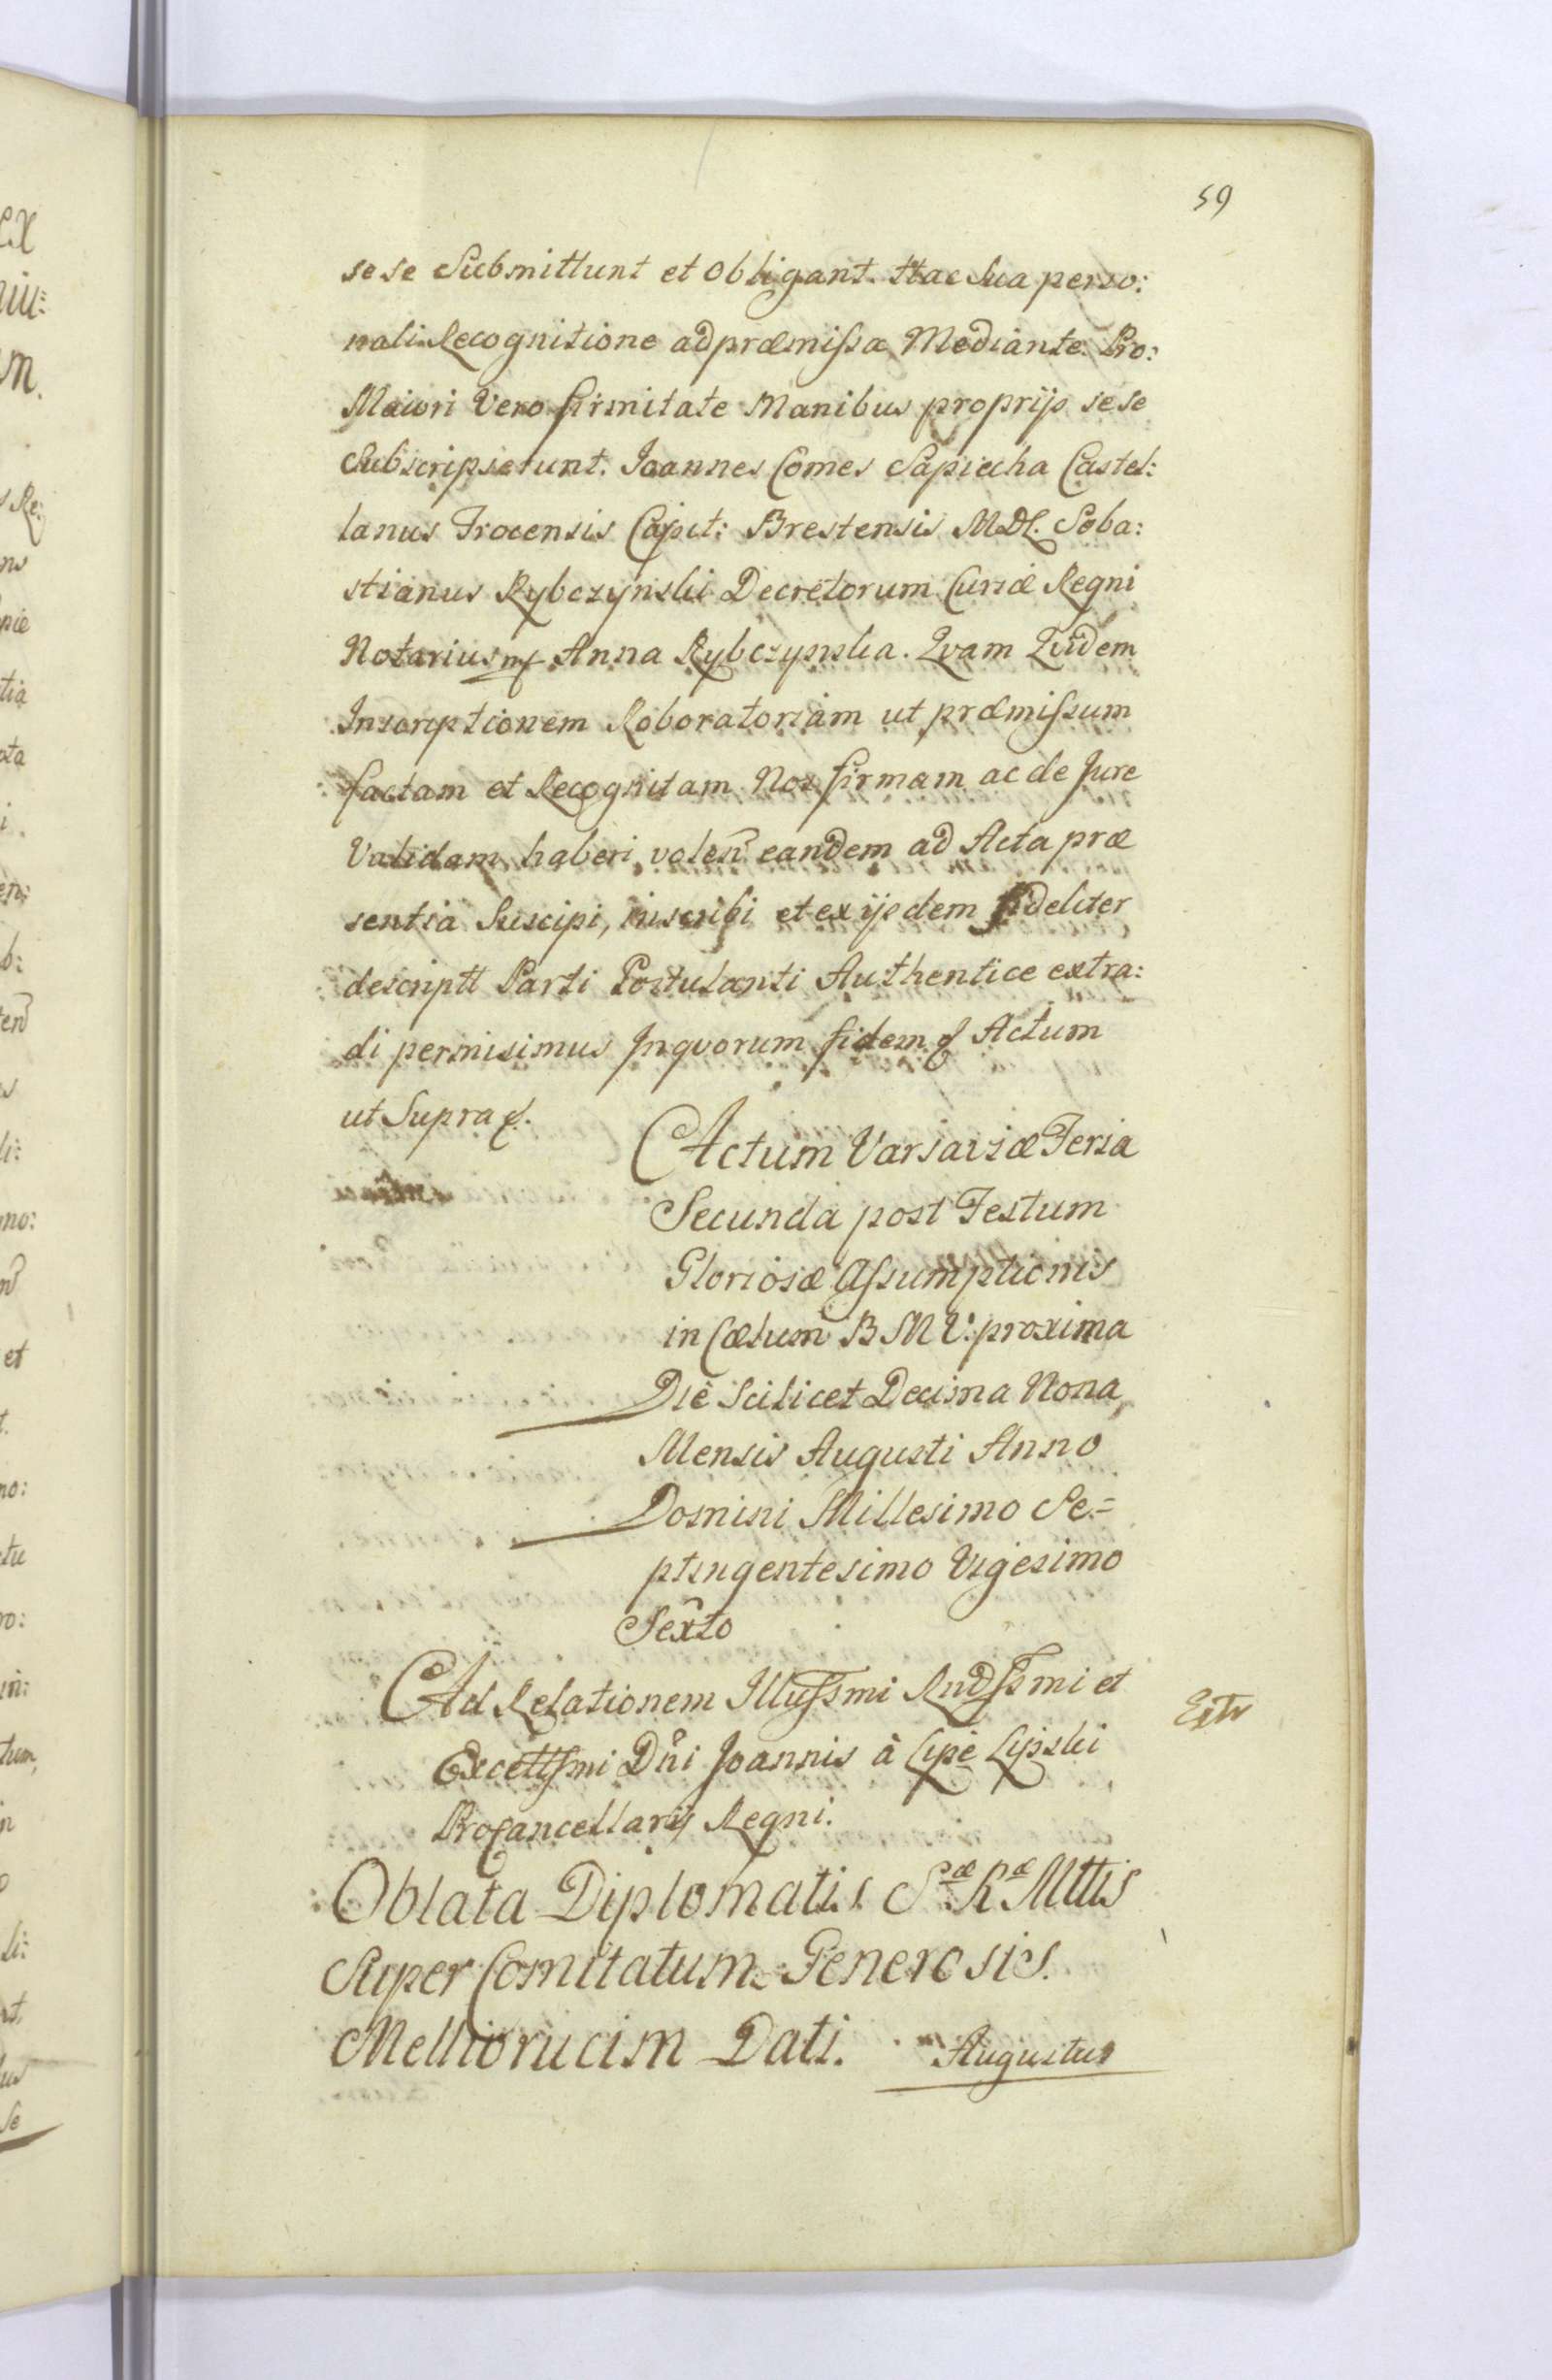 59
sese Submittunt et Obligant. Hac Sua perso:
nali Recognitione ad præmissa Mediante. Pro:
Maiori Vero firmitate Manibus proprijs sese
Subscripserunt. Joannes Comes Sapiecha Castel:
lanus Trocensis Capit: Brestensis MDL. Seba:
stianus Rybczynski Decretorum Curiæ Regni
Notarius mp Anna Rybczynska. Qvam Qvidem
Inscriptionem Roboratoriam ut præmissum
factam et Recognitam Nos firmam ac de Jure
Validam haberi volen̄ eandem ad Acta præ
sentia Suscipi, inscribi et ex ijsdem fideliter
descriptt Parti Postulanti Authentice extra:
di permisimus Jnqvorum fidem Actum
ut Supra
Actum Varsaviæ Feria
Secunda post Festum
Gloriosæ Assumptionis
in Cælum B M V: proxima
Die Scilicet Decima Nona
Mensis Augusti Anno
Domini Millesimo Se=
ptingentesimo Vigesimo
Sexto
Ad Relationem Illussmi Rndssmi et
Excellssmi Dn̄i Joannis à Lipe Lipski
Procancellarij Regni.
Oblata Diplomatis Sæ Ræ Mttis
Super Comitatum Generosis
Melliorucim Dati.
Augustus